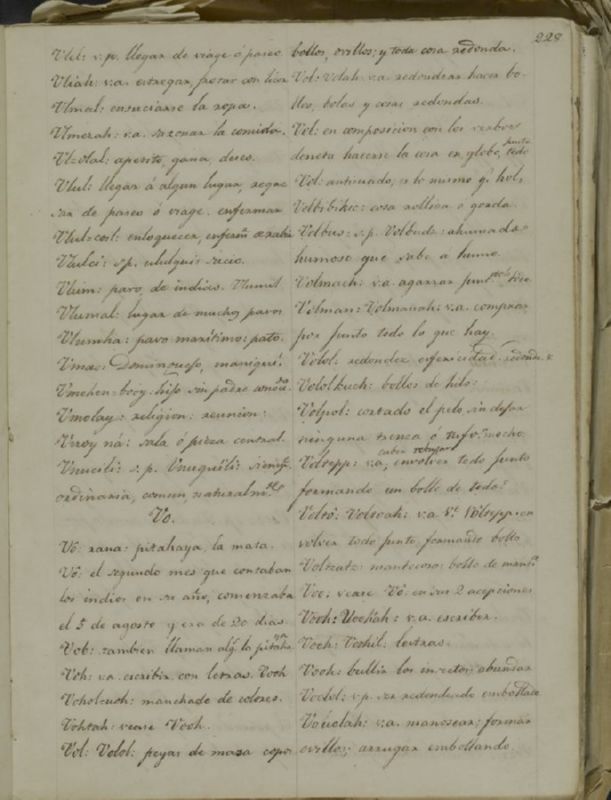 228
Vlel: v.p. llegar de viage ó paseo
Vliah: v.a. estregar, frezar con
Vlmal: ensuciarse la ropa.
Vlmezah: v.a. sazonar la comida.
Vl=olal: apetito, gana, deseo.
Vlul: llegar á algun lugar, regre
sar de paseo ó viage. enfermar
Vlul=coil: enloquecer,
Vlulci: s.p.
Vlum: pavo, de indios. Vlumil.
Vlumal: lugar de muchos pavos
Vlumha: pavo marítimo: pato.
Vmac:
Vmehen=booy: hijo sin padre
Vmolay: religion: reunion:
Vnoy ná: sala ó pieza central.
Vnucili: s.p. Vnuquili:
ordinaria, comun, naturalm.te
Vo.
Vo: xana: pitahaya, la mata.
Vó: el segundo mes que contaban
los indios en su año, comenzaba
el 5 de agosto y era de 20 dias.
Vob: tambien llaman asi la
Voh: v.a. escribir con letras. Vooh
Voholcuch: manchado de colores.
Vohtah: vease Vooh.
Vol: Volol: peyas de masa copos
bollos, ovillos; y toda cosa redonda.
Vol: Volah: v.a. redondear hacer bo-
llos, bolas y cosas redondas.
Vol: en composicion con los verbos
denota hacerse la cosa en globo, junto todo
Vol: anticuado, es lo mismo q.e hol.
Volbibikec: cosa rolliza o gorda.
Volbus: s.p. Volbuts: ahumado
humoso que sabe a humo.
Volmach: v.a. agarrar junto
Volman: Volmanah: v.a. comprar
por junto todo lo que hay.
Volol: redondez esfericidad. redonda
Vololkuch: bollos de hilo:
Volpol: cortado el pelo, sin dejar
ninguna trenca ó
Voltepp: v.a. envolver todo junto
formando un bollo de todo.
Volto: Voltoah: v.a. V.e Voltepp: en
volver todo junto, formando bollo
Voltzatz: mantecoso: bollo de
Voo: vease Vó. en sus 2 acepciones
Vooh: Voohah: v.a. escribir.
Vooh: Voohil: letras.
Vooh: bullir los insectos, abundar
Voolol: v.p. ser redondeado embollado
Vouolah: v.a. manosear; formar
ovillos; arrugar embollando.